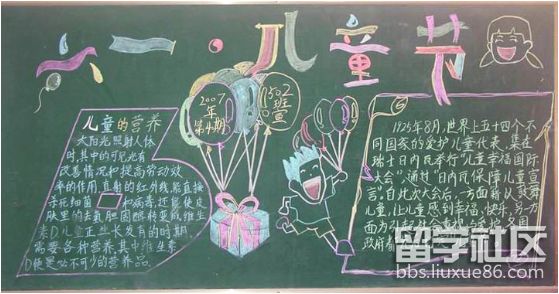 六一·儿童节
2007年第4期
1502班宣
儿童的营养
太阳光照射人体
时,其中的可见光有
改善情况和提高劳动效
率的作用,直射的红外线,能直接
杀死细菌 病毒,还能使皮
肤里的去氧胆固醇转变成维生
素D,儿童正生长发育的时期
需要各种营养,其中维生素
D便是必不可少的营养品。
1925年8月,世界上五十四个不
同国家的爱护儿童代表,集在
瑞士日内瓦举行“儿童幸福国际
大会”,通过“日内瓦保障儿童宣
言”,自此次大会后,一方面藉以鼓舞
儿童,让儿童感到幸福、快乐,另一方
面为
政府都
留学社区
bbs.liuxue86.com